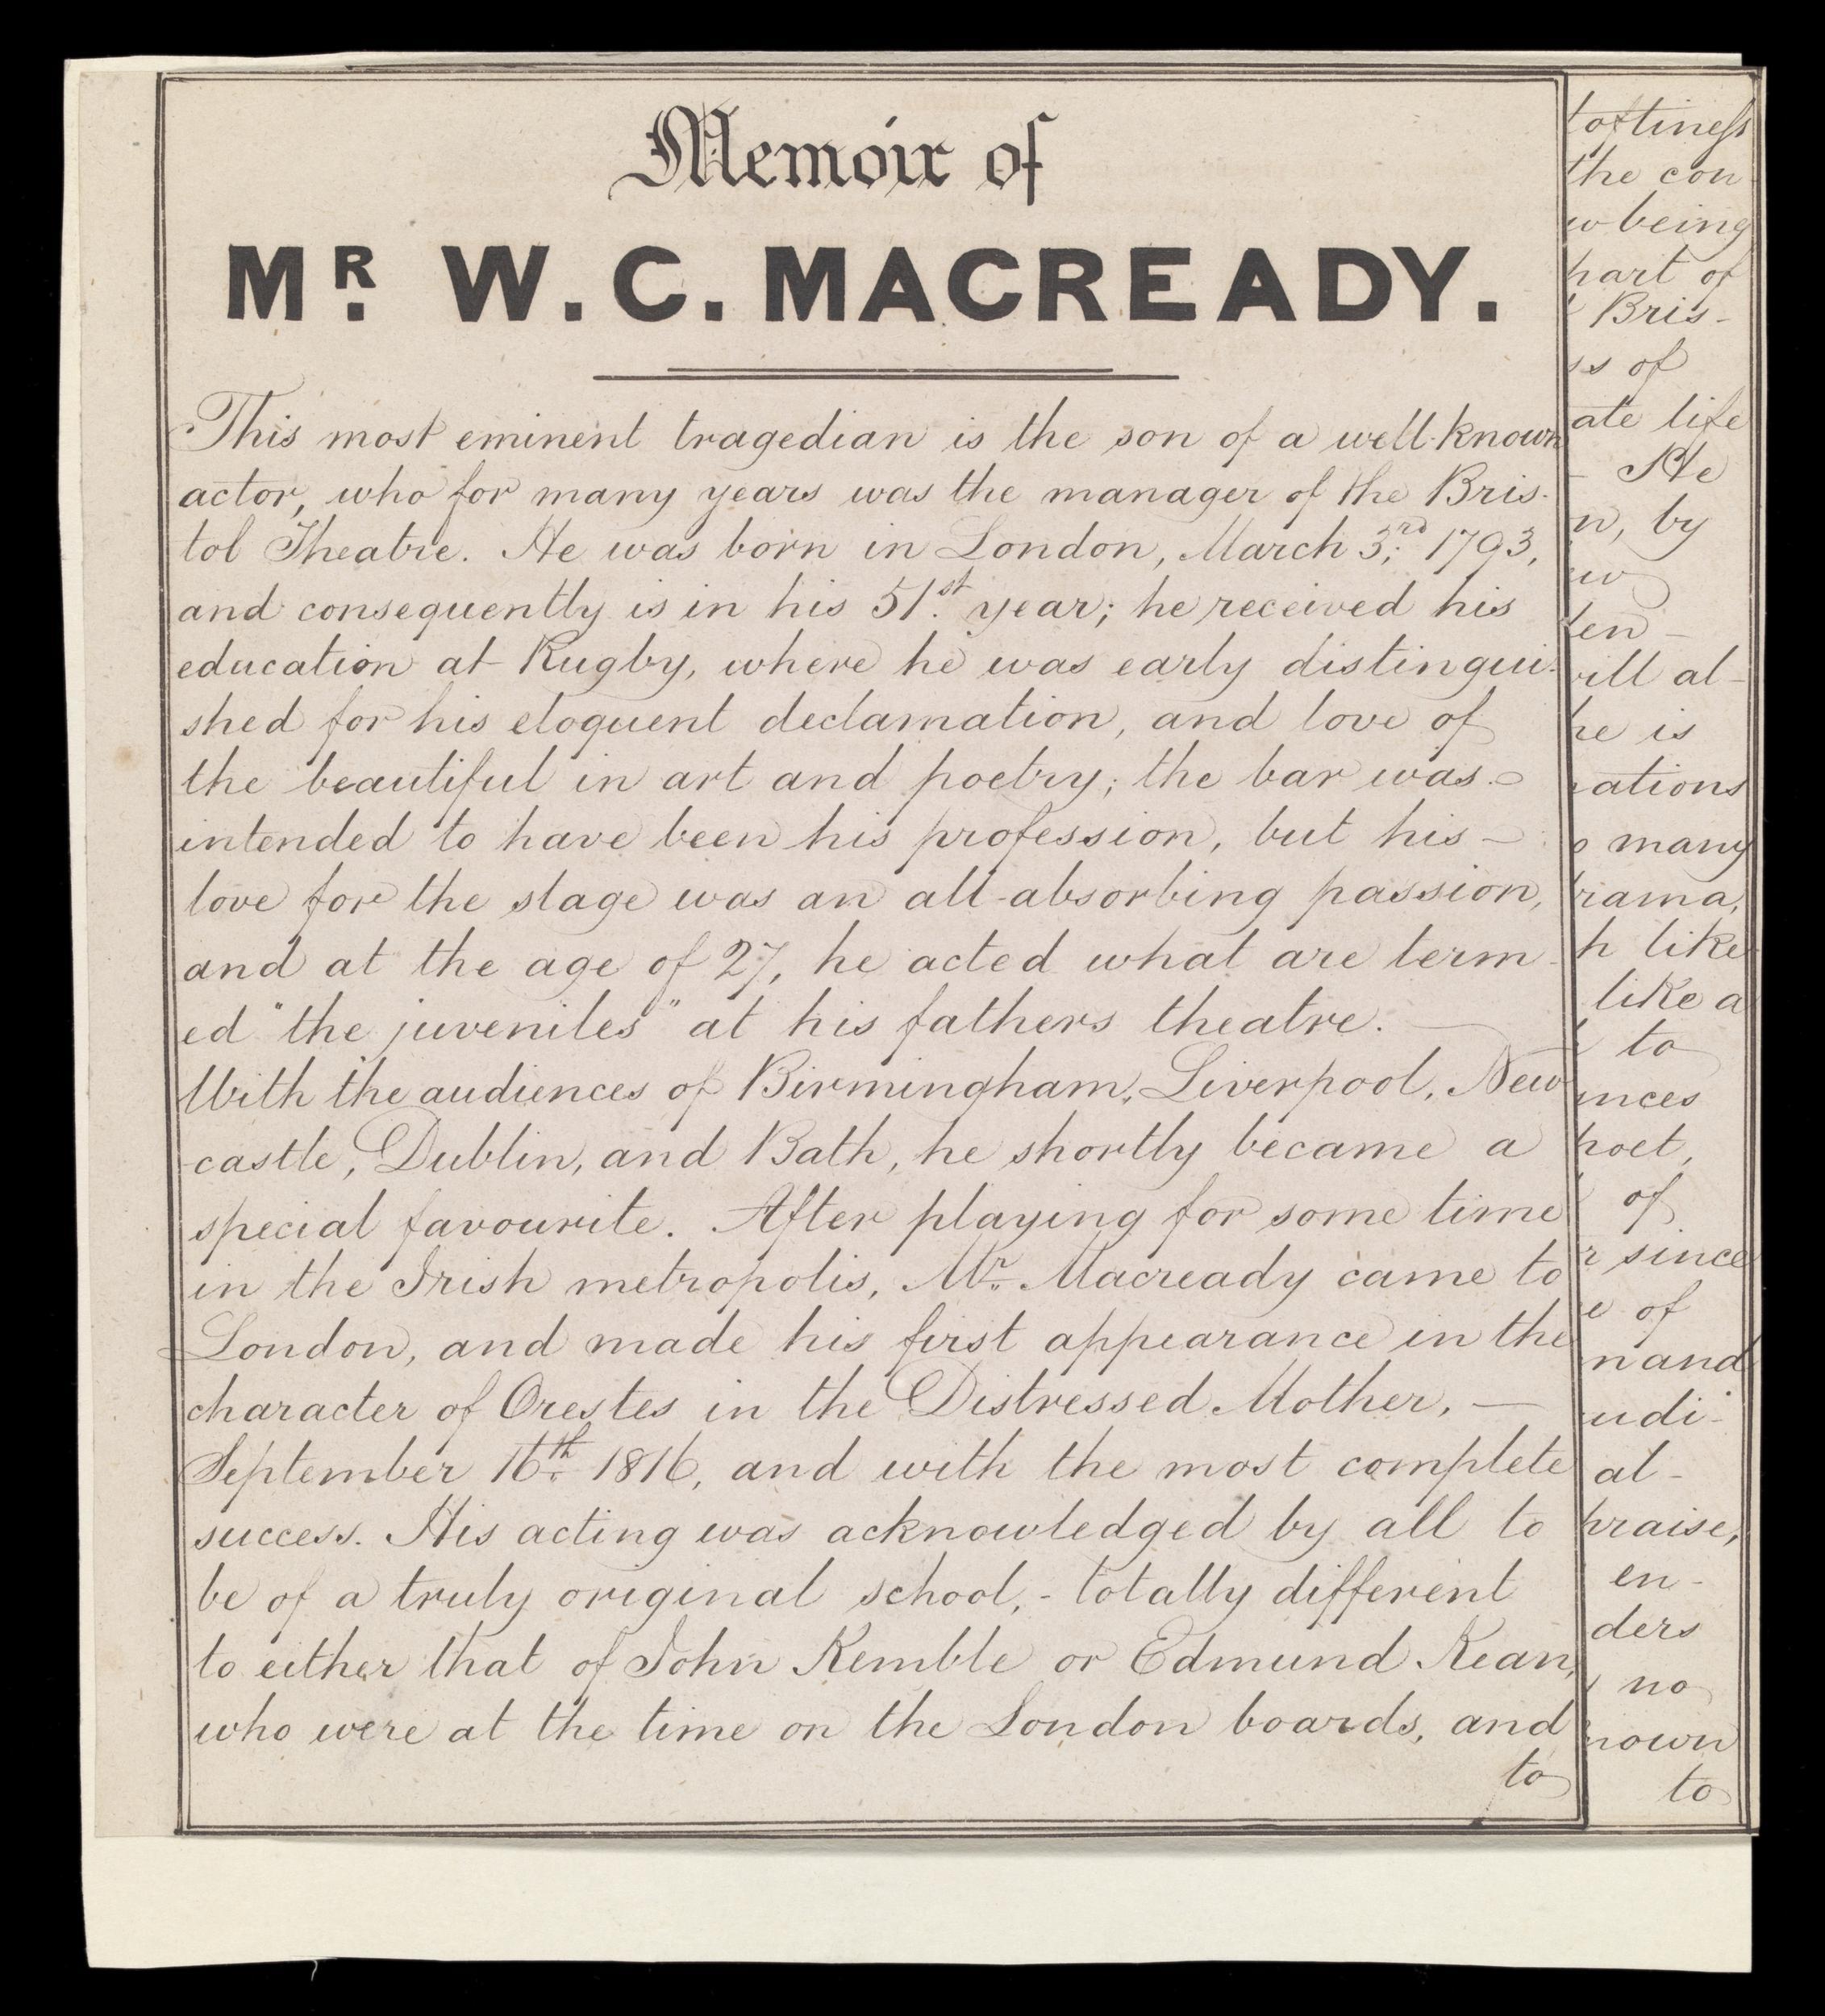 Memoir of
MR. W. C. MACREADY.
This most eminent tragedian is the son of a well-known
actor, who for many years was the manager of the Bris-
tol Theatre. He was born in London, March 3rd. 1793,
and consequently is in his 51st. year; he received his
education at Rugby, where he was early distingui-
shed for his eloquent declamation, and love of
the beautiful in art and poetry; the bar was -
intended to have been his profession, but his -
love for the stage was an all-absorbing passion,
and at the age of 27, he acted what are term-
ed "the juveniles" at his fathers theatre. —
With the audiences of Birmingham, Liverpool, New
-castle, Dublin, and Bath, he shortly became a
special favourite. After playing for some time
in the Irish metropolis, Mr. Macready came to
London, and made his first appearance in the
character of Orestes in the Distressed Mother, —
September 16th. 1816, and with the most complete
success. His acting was acknowledged by all to
be of a truly original school, - totally different
to either that of John Kemble or Edmund Kean,
who were at the time on the London boards, and
to
loftiness
the con
being
part of
Bris-
of
ate life
- He
n, by
ten-
will al-
he is
ations
many
rama,
h like
like a
to
nces
poet,
of
since
of
n and
udi-
al-
praise,
en-
ders
no
nown
to